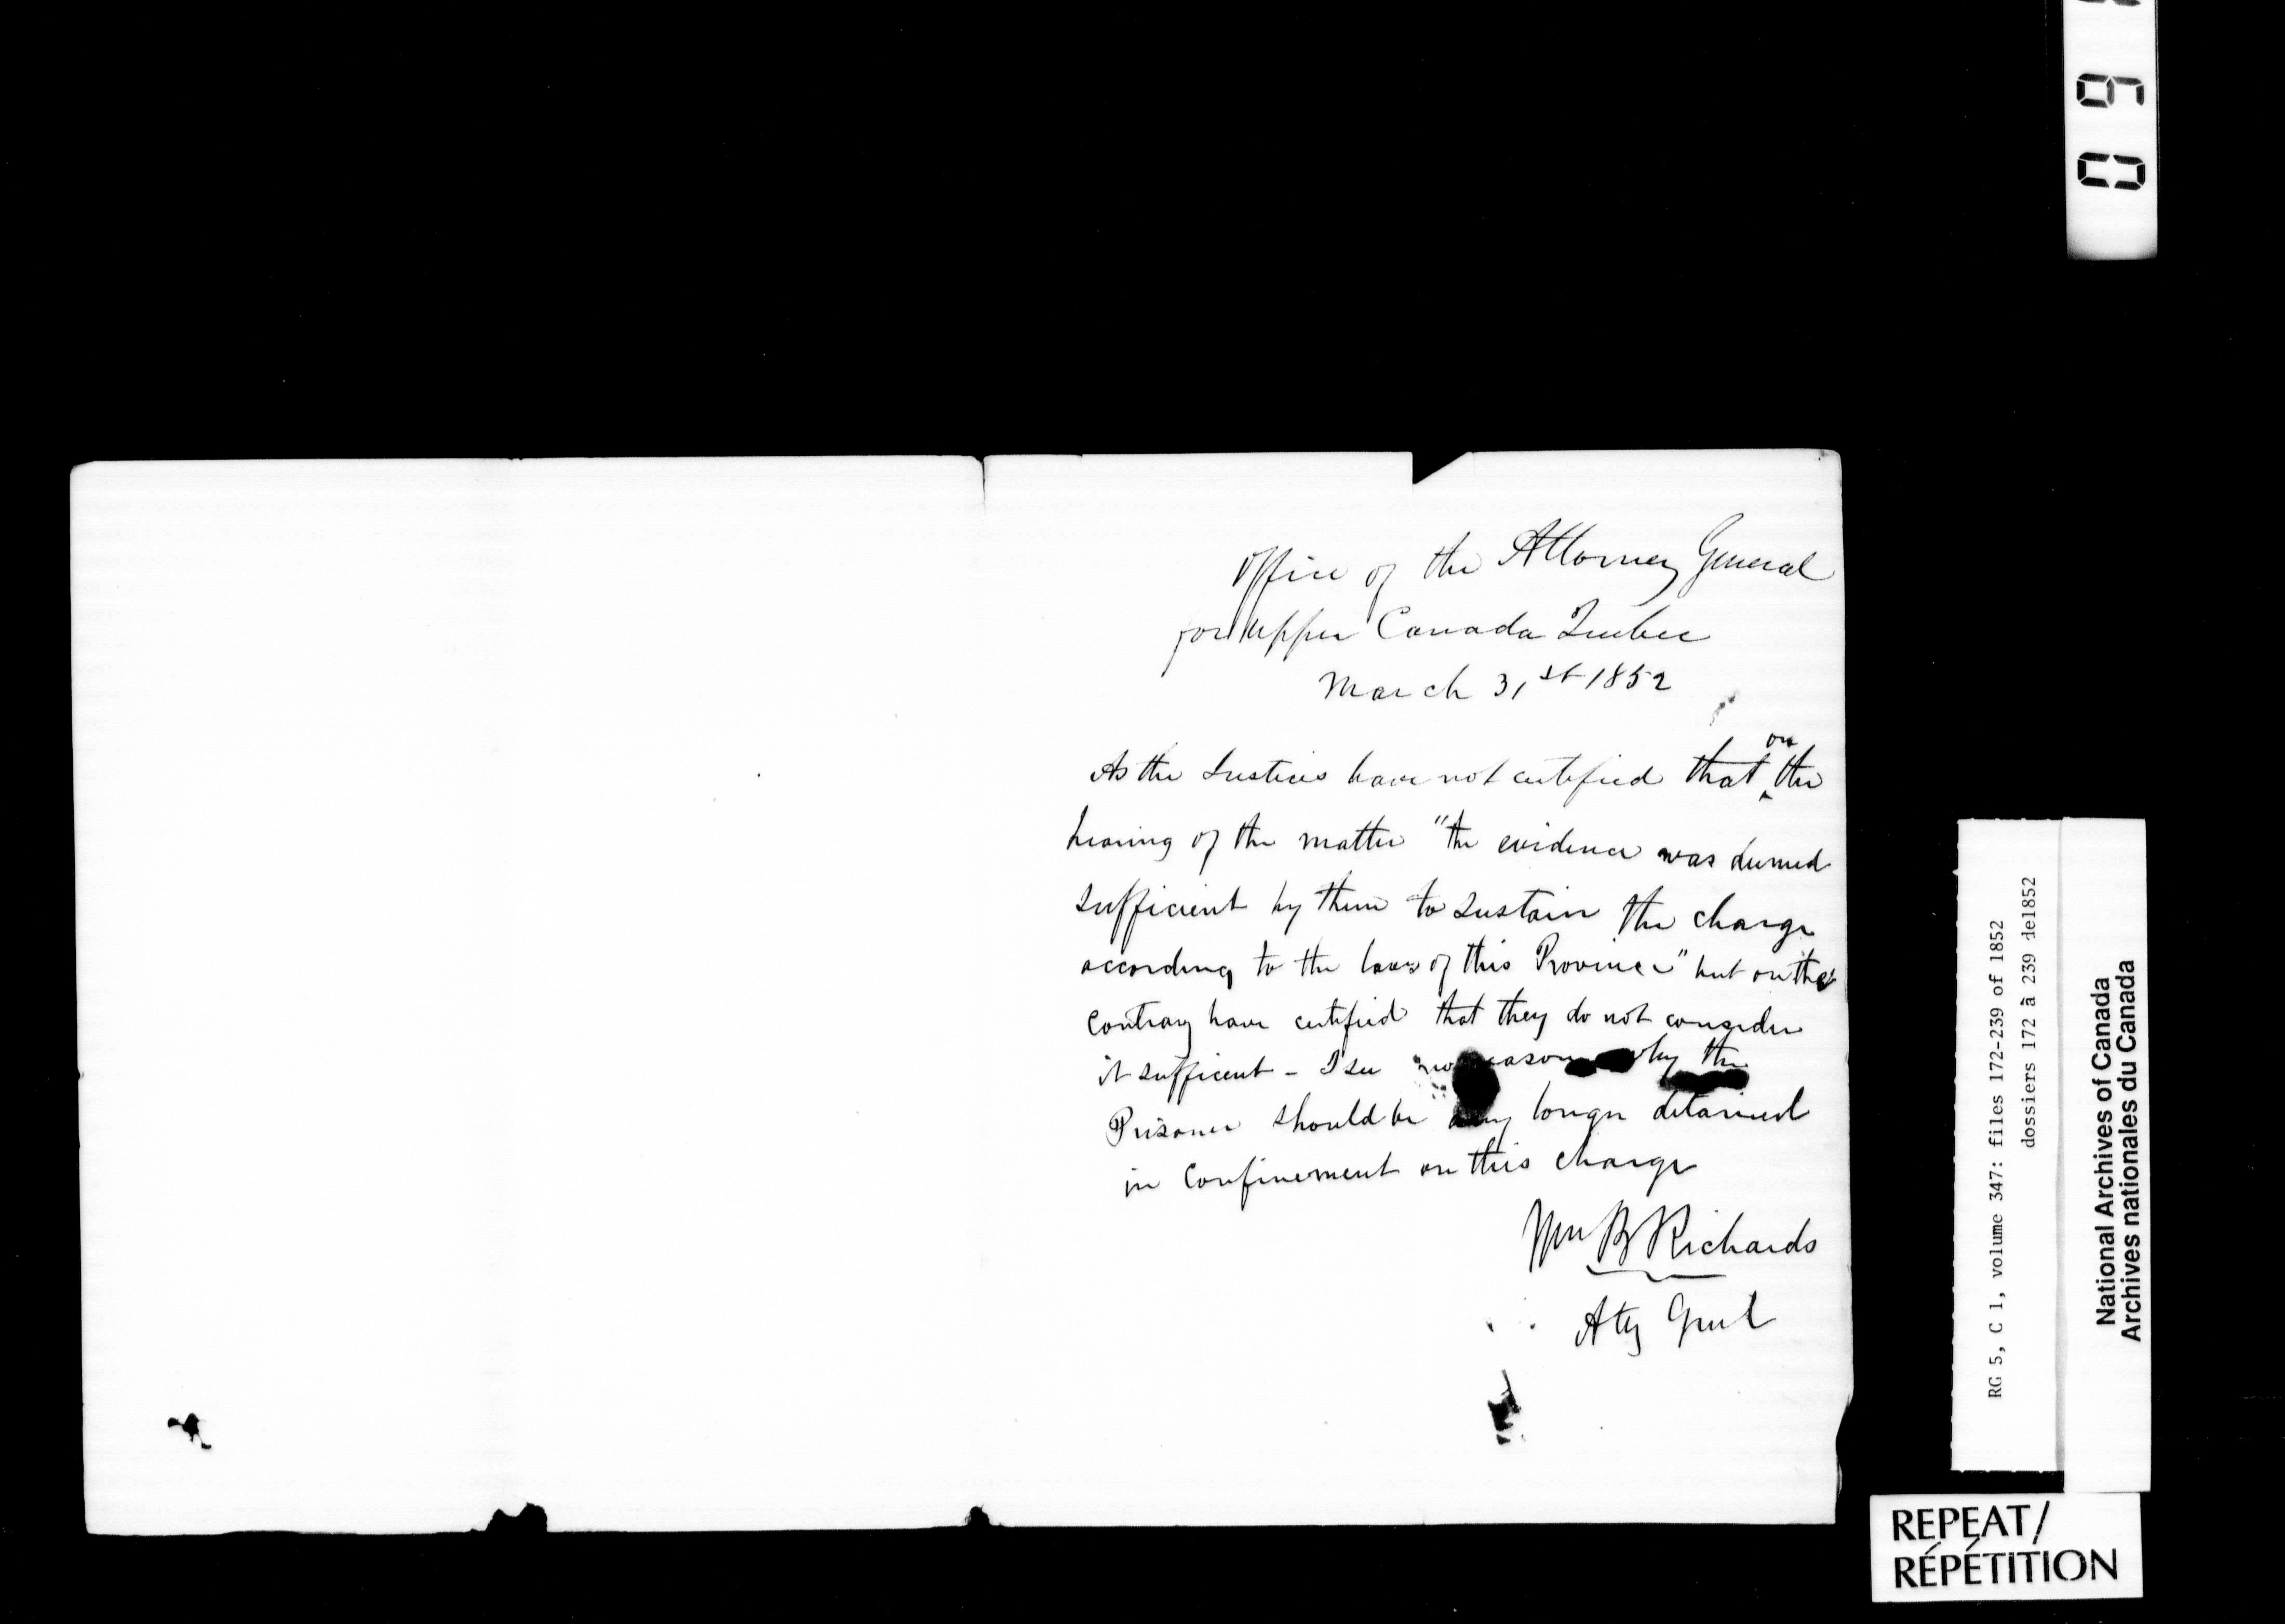 Office of the Attorney General
for Upper Canada Quebec
March 31st 1852
As the Justices have not certified that on the
hearing of the matter "the evidence was deemed
sufficient by them to sustain the charge
according to the laws of this Province" but on the
contrary have certified that they do not consider
it sufficient - I see no reason why the
Prisoner should be any longer detained
in confinement on this charge
Wm B Richards
Aty Genl
60
RG 5, C 1, volume 347: files 172-239 of 1852
dossiers 172 à 239 de1852
National Archives of Canada
Archives nationales du Canada
REPEAT/
RÉPÉTITION